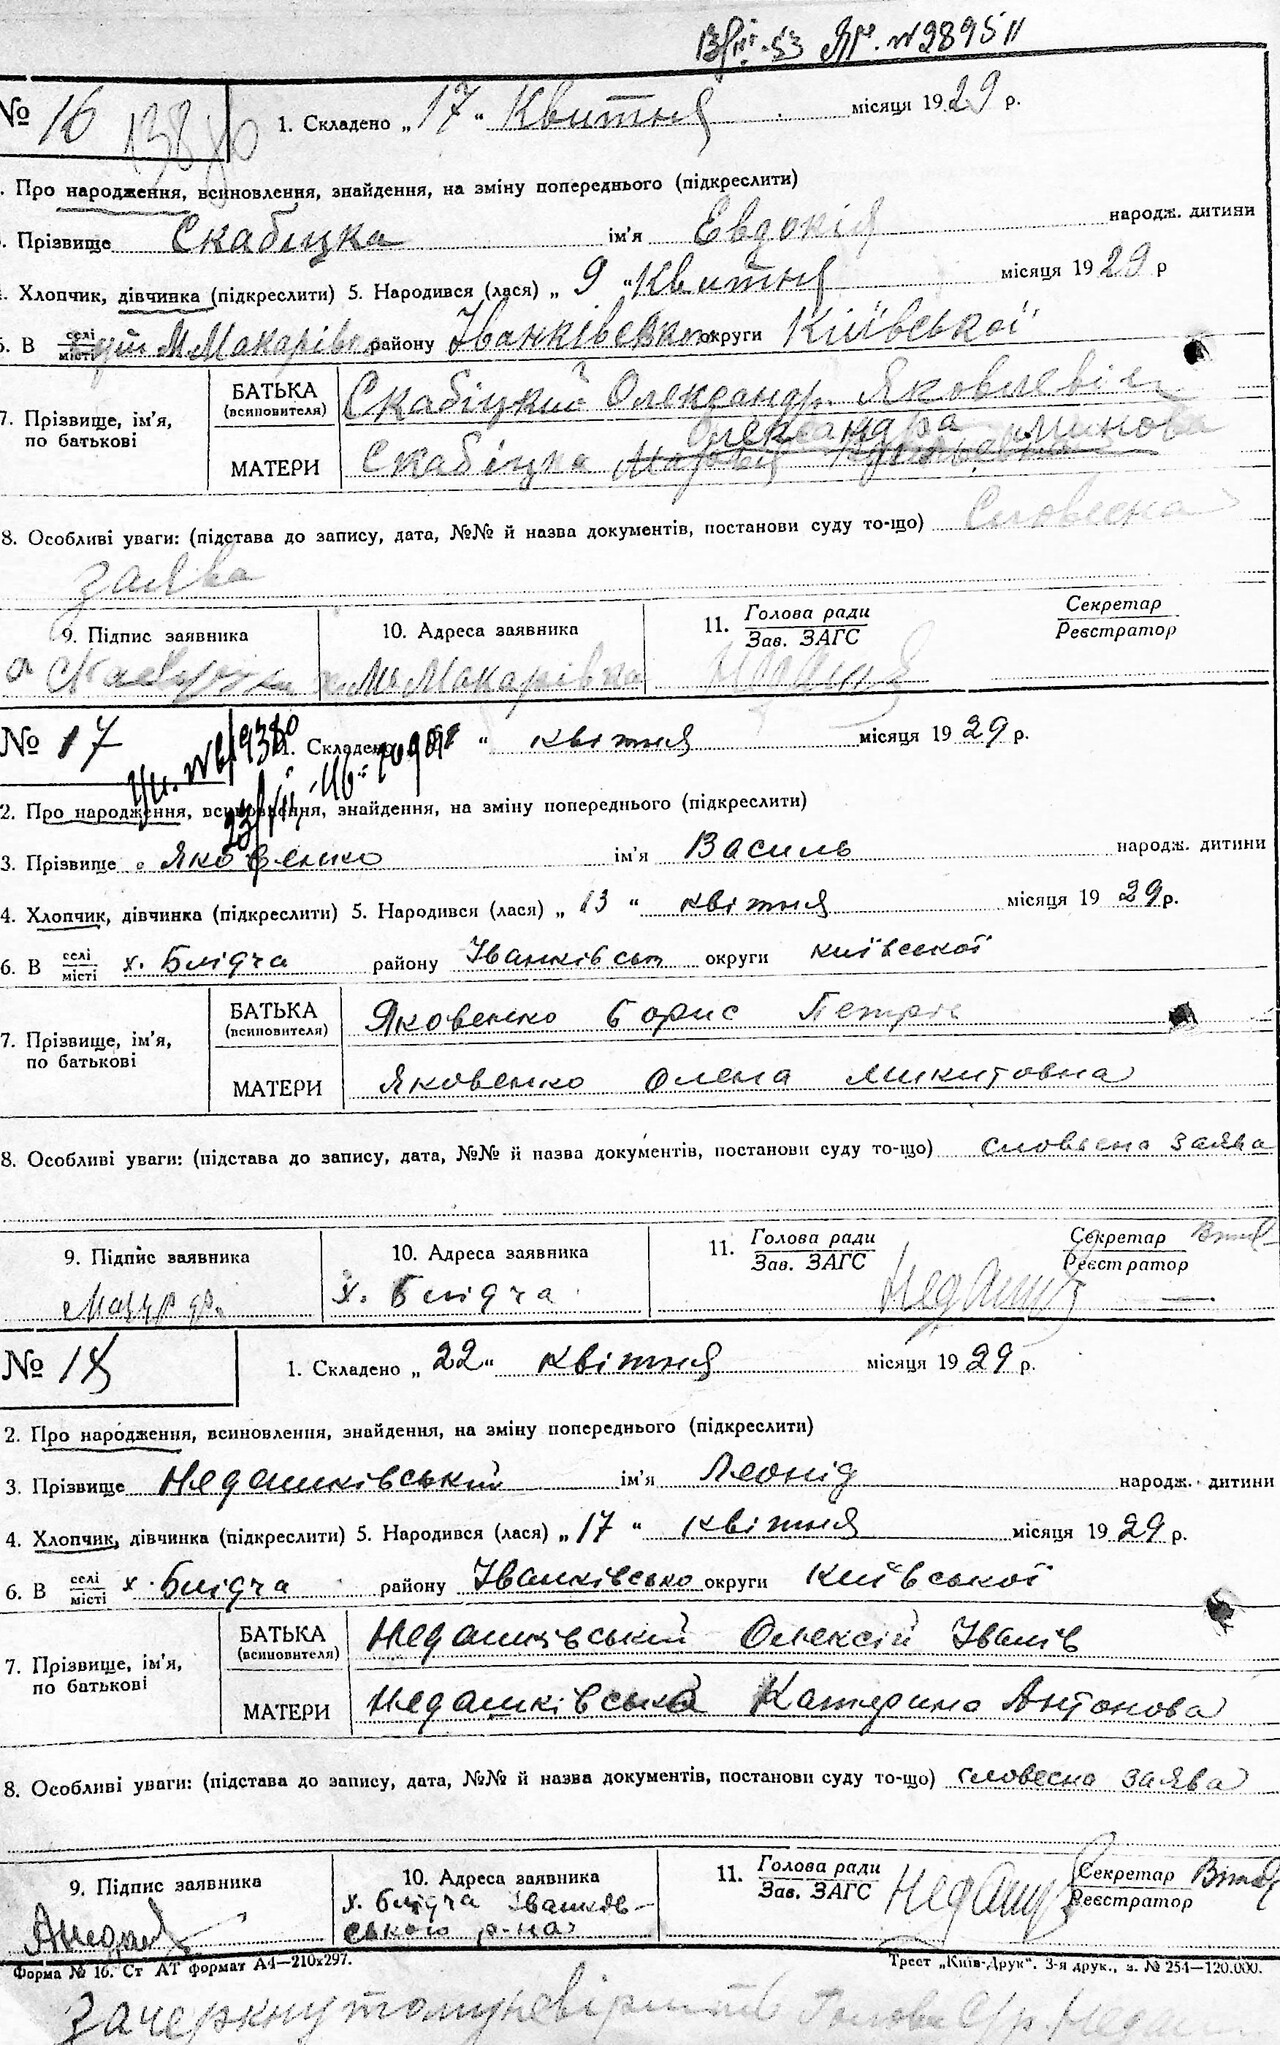 № 16
1. Складено „ 17 “ Квитня місяця 1929 р.
Про народження, всиновлення, знайдення, на зміну попереднього (підкреслити)
Прізвище Скабіцка ім'я Евдокія народж. дитини
Хлопчик, дівчинка (підкреслити) 5. Народився (лася) „ 9 “ Квитня місяця 1929 р
В селі місті М Макарівка району Іванківсько округи Київської
7. Прізвище, ім'я, по батькові
БАТЬКА (всиновителя) Скабіцкий Олександр Яковлевіч
Олександра
МАТЕРИ Скабіцка
8. Особливі уваги: (підстава до запису, дата, №№ й назва документів, постанови суду то-що) Словесна
заява
9. Підпис заявника 10. Адреса заявника 11. Голова ради Зав. ЗАГС Секретар Реєстратор
М Макарівка
№ 17
1. Складено “ квітня місяця 1929 р.
2. Про народження, всиновлення, знайдення, на зміну попереднього (підкреслити)
3. Прізвище Яковенко ім'я Василь народж. дитини
4. Хлопчик, дівчинка (підкреслити) 5. Народився (лася) „ 13 “ квітня місяця 1929 р.
6. В селі місті х. Блідча району Іванківськ округи київської
7. Прізвище, ім'я, по батькові
БАТЬКА (всиновителя) Яковенко Борис Петрів
МАТЕРИ Яковенко Олена Микитовна
8. Особливі уваги: (підстава до запису, дата, №№ й назва документів, постанови суду то-що) словесна заява
9. Підпис заявника 10. Адреса заявника 11. Голова ради Зав. ЗАГС Секретар Реєстратор
х. Блідча
№ 18
1. Складено „ 22 “ квітня місяця 1929 р.
2. Про народження, всиновлення, знайдення, на зміну попереднього (підкреслити)
3. Прізвище Недашківський ім'я Леонід народж. дитини
4. Хлопчик, дівчинка (підкреслити) 5. Народився (лася) „ 17 “ квітня місяця 1929 р.
6. В селі місті х. Блідча району Іванківсько округи Київської
7. Прізвище, ім'я, по батькові
БАТЬКА (всиновителя) Недашківський Олексій Іванів
МАТЕРИ Недашківська Катерина Антонова
8. Особливі уваги: (підстава до запису, дата, №№ й назва документів, постанови суду то-що) словесна заява
9. Підпис заявника 10. Адреса заявника 11. Голова ради Зав. ЗАГС Секретар Реєстратор
х. Блідча Іванків-
ського р-на
Форма № 16. Ст АТ формат А4—210х297. Трест „Київ-Друк“. 3-я друк., з. № 254—120.000.
Зачеркнутому